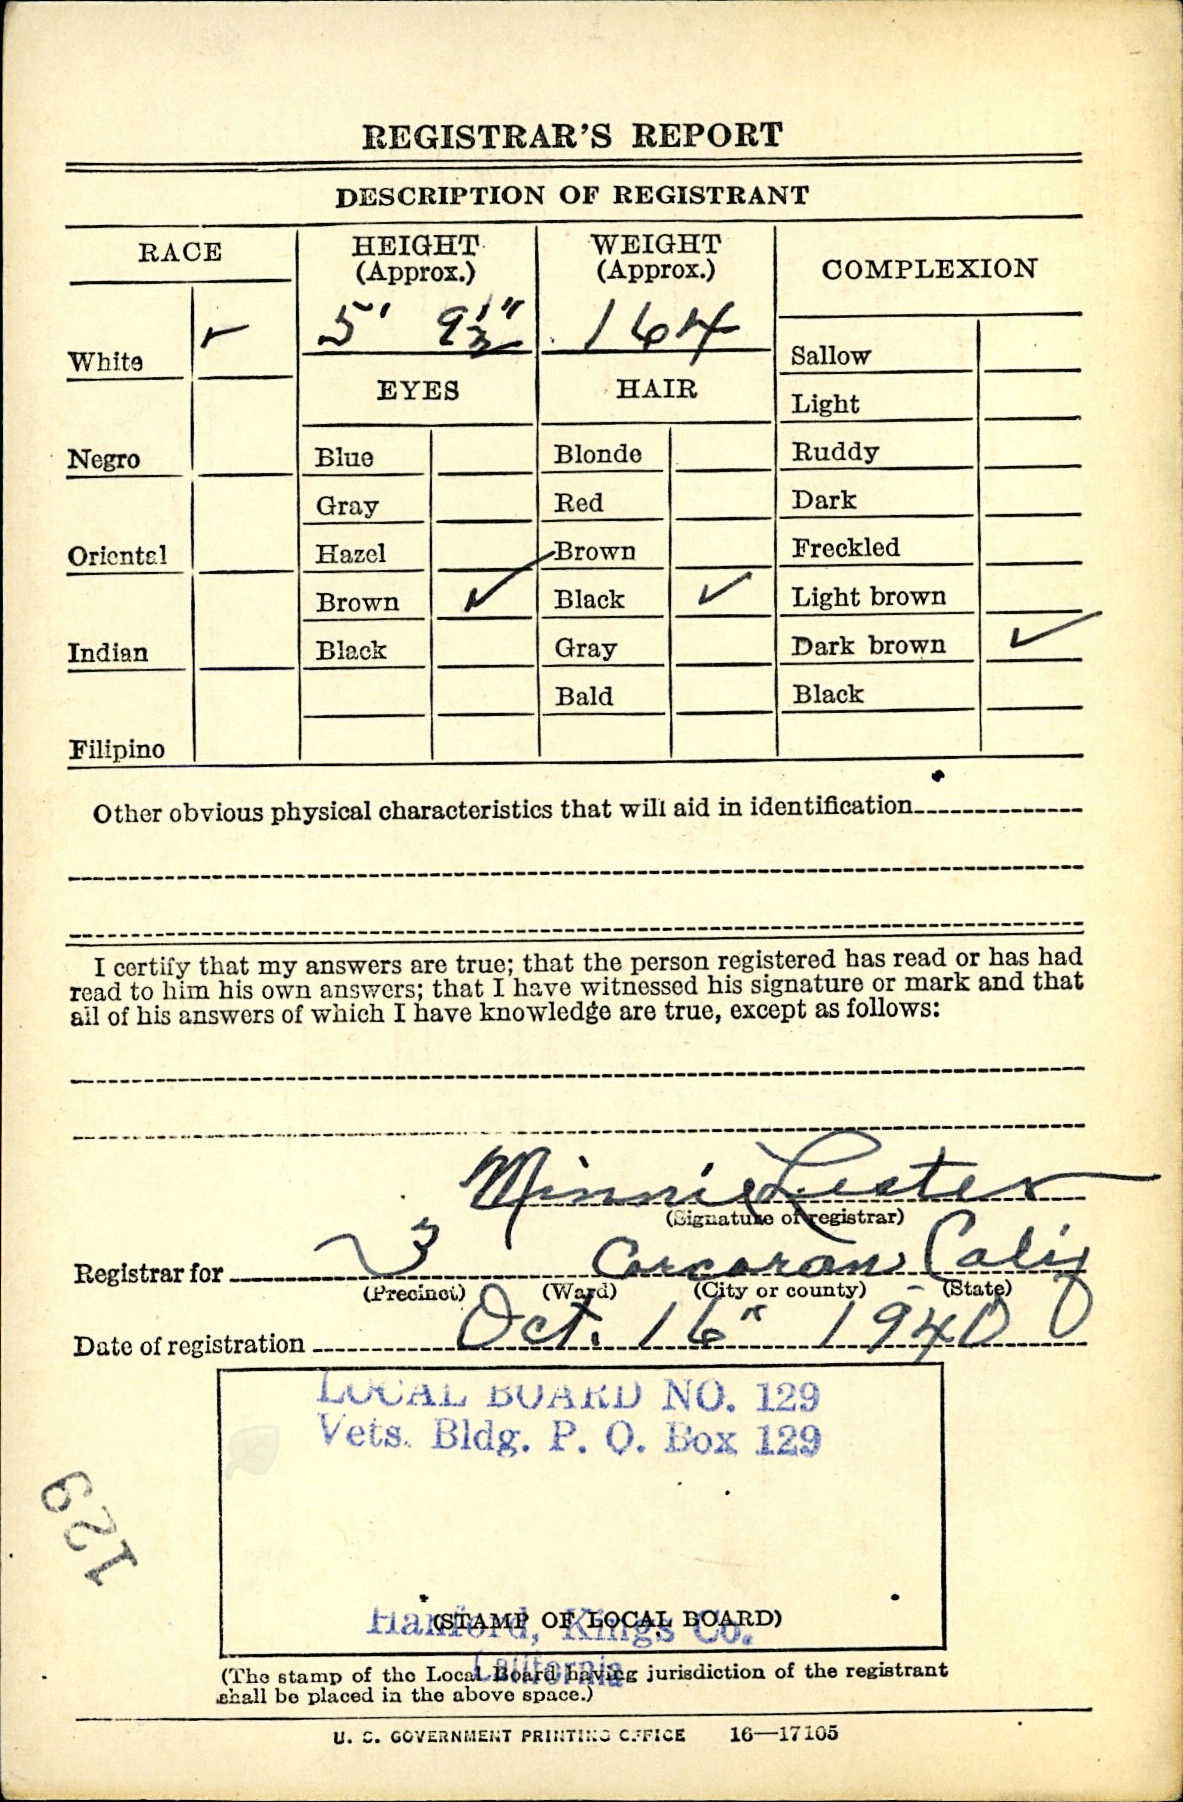 REGISTRAR'S REPORT
DESCRIPTION OF REGISTRANT
RACE
White ✓
Negro
Oriental
Indian
Filipino
HEIGHT
(Approx.)
5' 9½"
WEIGHT
(Approx.)
164
EYES
Blue
Gray
Hazel
Brown ✓
Black
HAIR
Blonde
Red
Brown
Black ✓
Gray
Bald
COMPLEXION
Sallow
Light
Ruddy
Dark
Freckled
Light brown
Dark brown ✓
Black
Other obvious physical characteristics that will aid in identification
I certify that my answers are true; that the person registered has read or has had
read to him his own answers; that I have witnessed his signature or mark and that
all of his answers of which I have knowledge are true, except as follows:
Minnie Lester
(Signature of registrar)
Registrar for 3 Corcoran Calif
(Precinct) (Ward) (City or county) (State)
Date of registration Oct. 16" 1940
LOCAL BOARD NO. 129
Vets. Bldg. P. O. Box 129
129
(STAMP OF LOCAL BOARD)
Hanford, Kings Co.
California
(The stamp of the Local Board having jurisdiction of the registrant
shall be placed in the above space.)
U. S. GOVERNMENT PRINTING OFFICE 16—17105